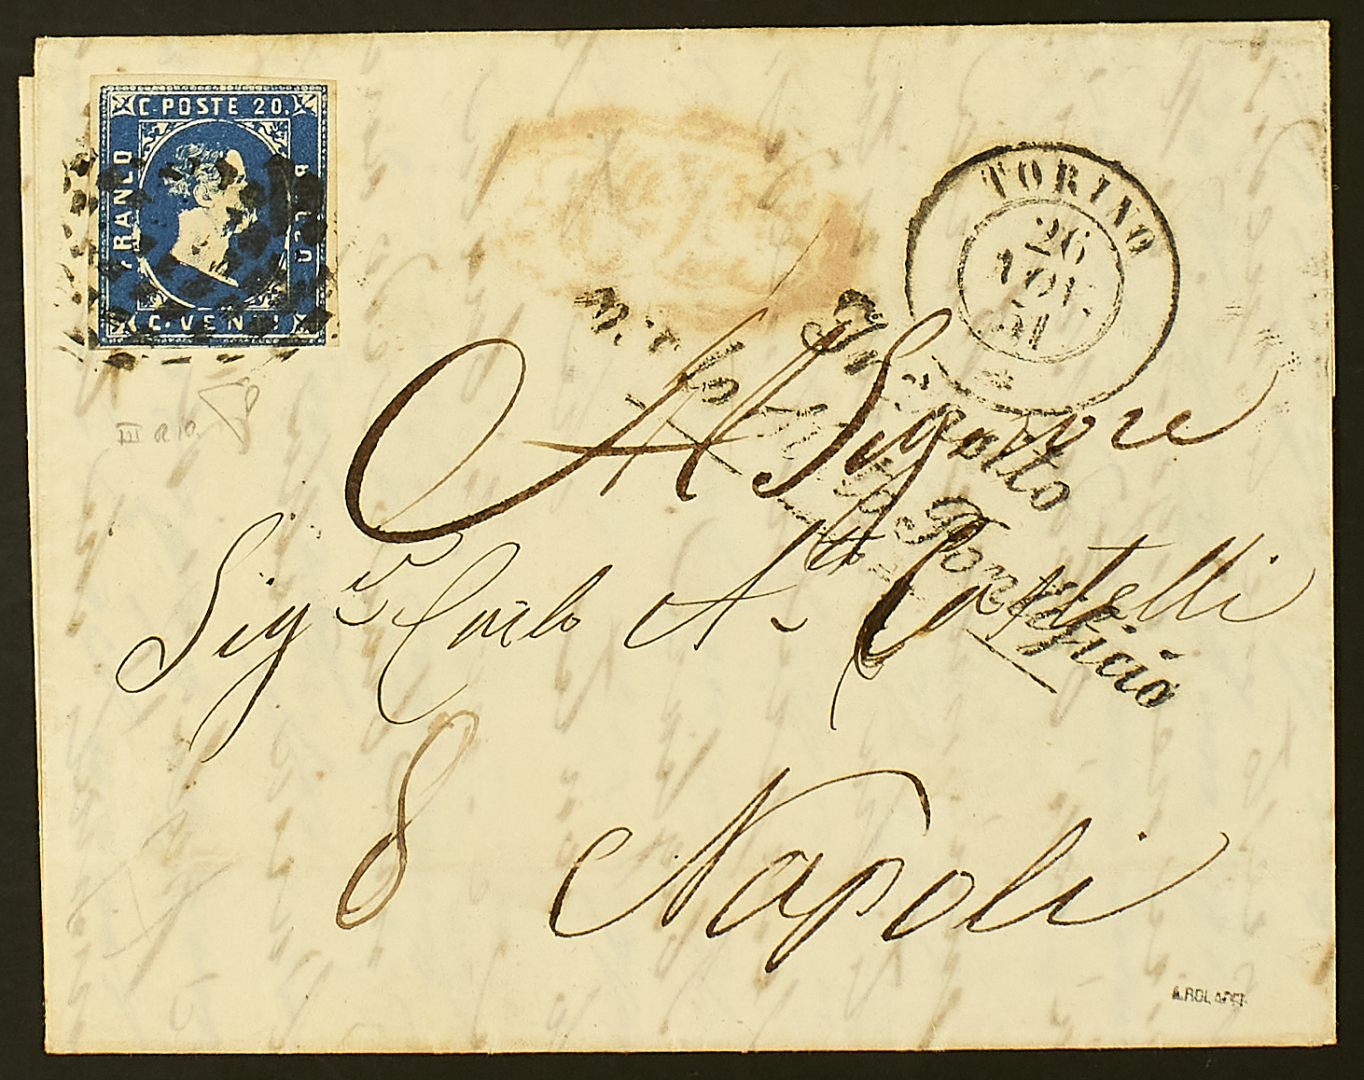 C. POSTE 20.
FRANCO
BOLLO
C. VENTI
TORINO
26
NOV
51
Al Signore
Sig.r Carlo A. Castelli
8 Napoli
Pontificio
III R 10.